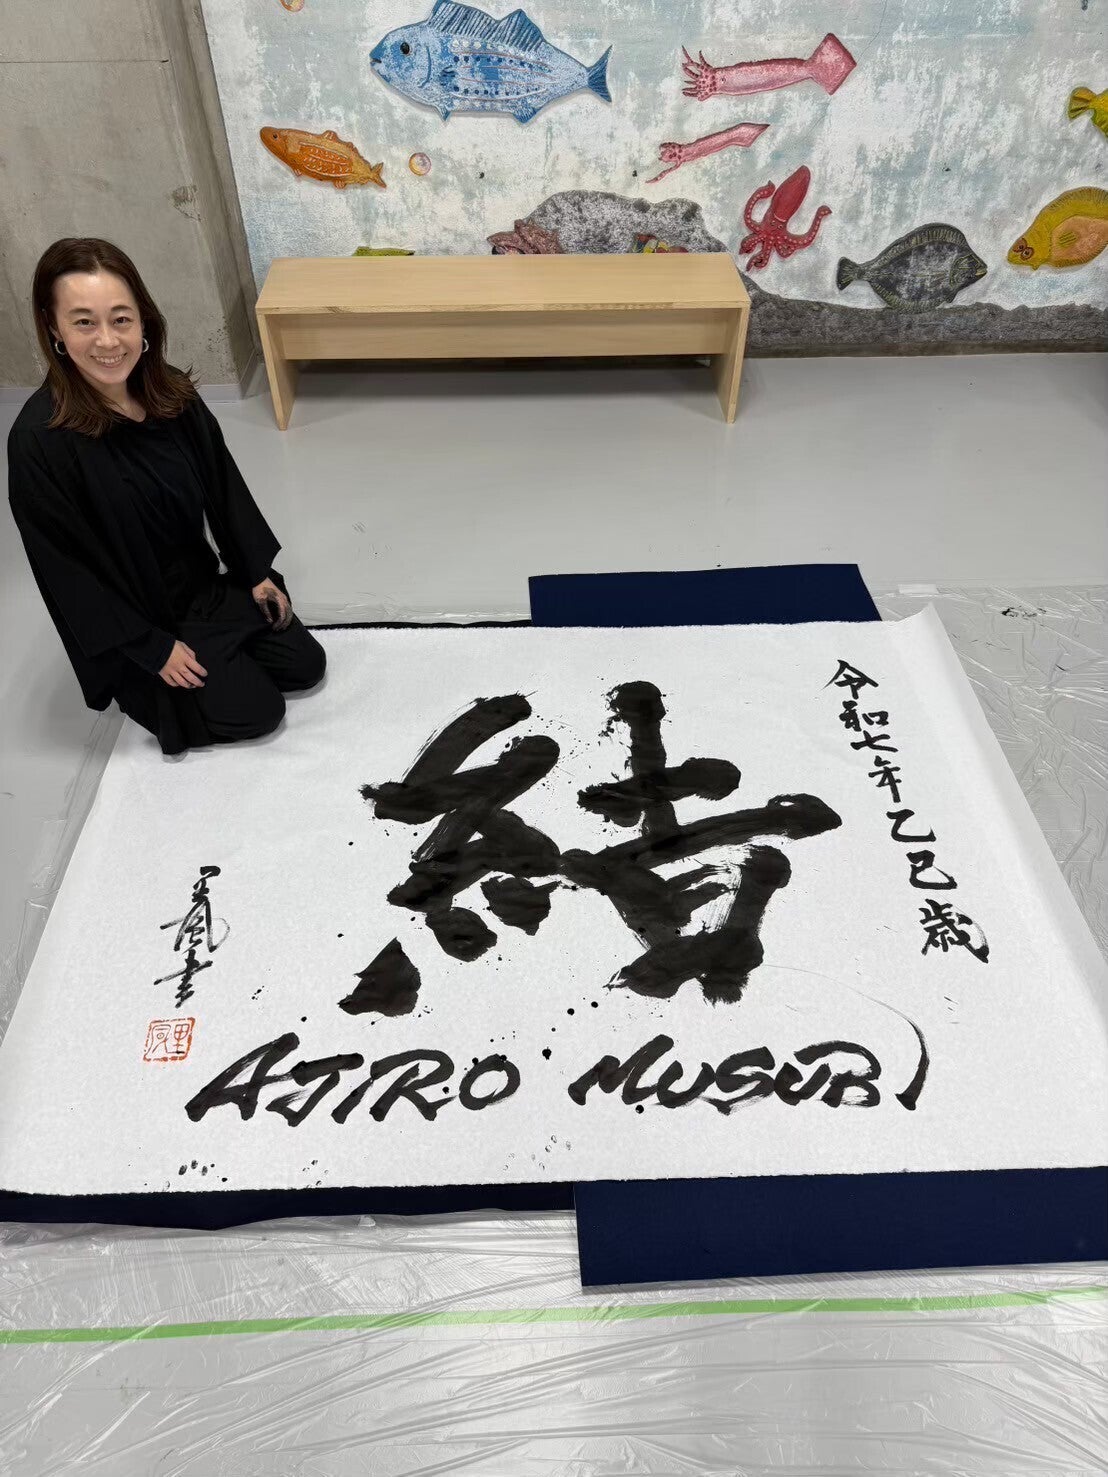 令和七年乙巳歳
結
AJIRO MUSUBI
風書